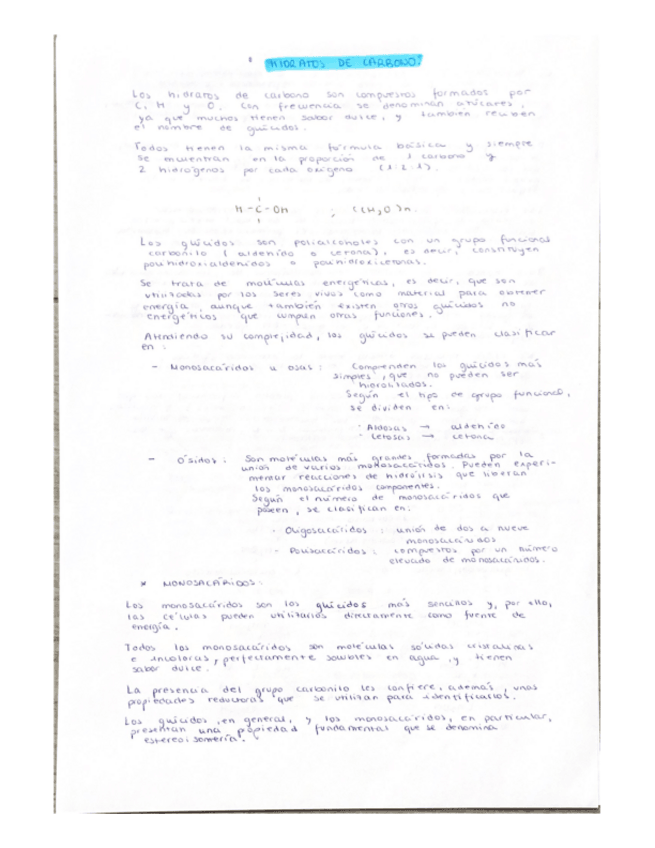 HIDRATOS DE CARBONO:
Los hidratos de carbono son compuestos formados por
C, H y O. Con frecuencia se denominan azúcares,
ya que muchos tienen sabor dulce, y también reciben
el nombre de glúcidos.
Todos tienen la misma fórmula básica y siempre
se encuentran en la proporción de 1 carbono y
2 hidrógenos por cada oxígeno (1:2:1).
H-C-OH ; (CH2O)n.
Los glúcidos son polialcoholes con un grupo funcional
carbonilo (aldehído o cetona), es decir, constituyen
polihidroxialdehídos o polihidroxicetonas.
Se trata de moléculas energéticas, es decir, que son
utilizadas por los seres vivos como material para obtener
energía, aunque también existen otros glúcidos no
energéticos que cumplen otras funciones.
Atendiendo su complejidad, los glúcidos se pueden clasificar
en:
- Monosacáridos u osas: Comprenden los glúcidos más
simples, que no pueden ser
hidrolizados.
Según el tipo de grupo funcional,
se dividen en:
· Aldosas → aldehído
· Cetosas → cetona
- Ósidos: Son moléculas más grandes formadas por la
unión de varios monosacáridos. Pueden experi-
mentar reacciones de hidrólisis que liberan
los monosacáridos componentes.
Según el número de monosacáridos que
poseen, se clasifican en:
· Oligosacáridos: unión de dos a nueve
monosacáridos
· Polisacáridos: compuestos por un número
elevado de monosacáridos.
* MONOSACÁRIDOS:
Los monosacáridos son los glúcidos más sencillos y, por ello,
las células pueden utilizarlos directamente como fuente de
energía.
Todos los monosacáridos son moléculas sólidas cristalinas
e incoloras, perfectamente solubles en agua, y tienen
sabor dulce.
La presencia del grupo carbonilo les confiere, además, unas
propiedades reductoras que se utilizan para identificarlos.
Los glúcidos, en general, y los monosacáridos, en particular,
presentan una propiedad fundamental que se denomina
estereoisomería.